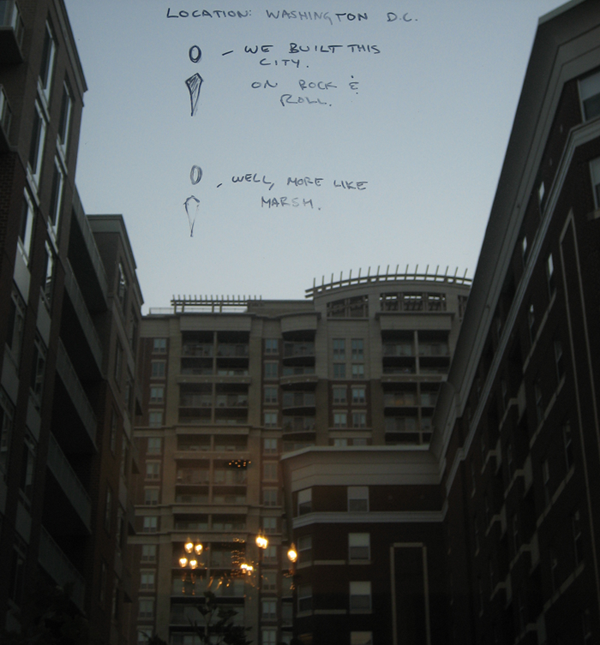 LOCATION: WASHINGTON D.C.
- WE BUILT THIS
CITY.
ON ROCK &
ROLL.
- WELL, MORE LIKE
MARSH.